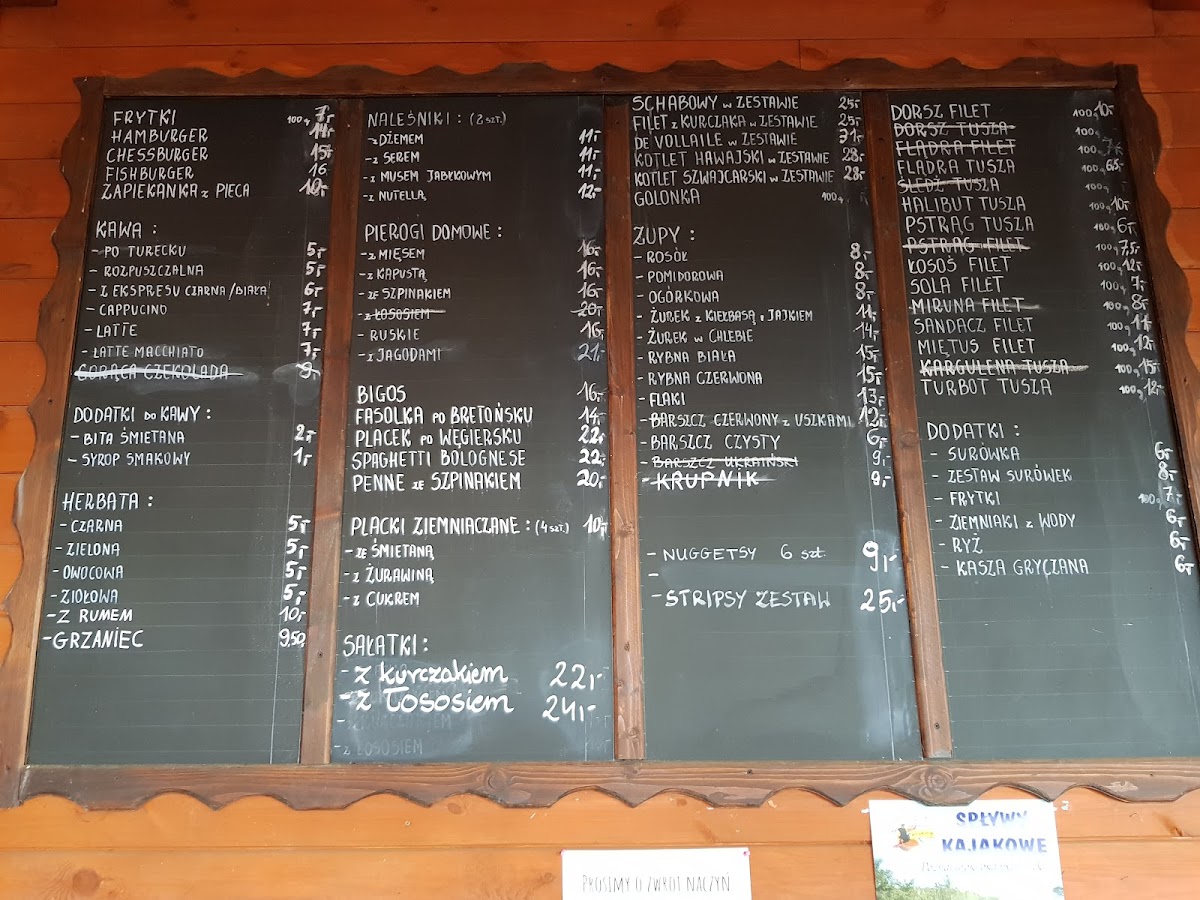 FRYTKI 100g 7,-
HAMBURGER 14,-
CHESSBURGER 15,-
FISHBURGER 16
ZAPIEKANKA z PIECA 10,-
KAWA :
- PO TURECKU 5,-
- ROZPUSZCZALNA 5,-
- Z EKSPRESU CZARNA/BIAŁA 6,-
- CAPPUCINO 7,-
- LATTE 7,-
- LATTE MACCHIATO 7,-
GORĄCA CZEKOLADA 9,-
DODATKI do KAWY :
- BITA ŚMIETANA 2,-
- SYROP SMAKOWY 1,-
HERBATA :
- CZARNA 5,-
- ZIELONA 5,-
- OWOCOWA 5,-
- ZIOŁOWA 5,-
- Z RUMEM 10,-
- GRZANIEC 9,50
NALEŚNIKI : (2 SZT.)
- z DŻEMEM 11,-
- z SEREM 11,-
- z MUSEM JABŁKOWYM 11,-
- z NUTELLĄ 12,-
PIEROGI DOMOWE :
- z MIĘSEM 16,-
- z KAPUSTĄ 16,-
- ze SZPINAKIEM 16,-
- z ŁOSOSIEM 20,-
- RUSKIE 16,-
- z JAGODAMI 21,-
BIGOS 16,-
FASOLKA PO BRETOŃSKU 14,-
PLACEK PO WĘGIERSKU 22,-
SPAGHETTI BOLOGNESE 22,-
PENNE ze SZPINAKIEM 20,-
PLACKI ZIEMNIACZANE : (4 SZT.) 10,-
- ze ŚMIETANĄ
- z ŻURAWINĄ
- z CUKREM
SAŁATKI :
- z kurczakiem 22,-
- z Łososiem 24,-
- z ŁOSOSIEM
SCHABOWY w ZESTAWIE 25,-
FILET z KURCZAKA w ZESTAWIE 25,-
DE VOLLAILE w ZESTAWIE
KOTLET HAWAJSKI w ZESTAWIE 28,-
KOTLET SZWAJCARSKI w ZESTAWIE 28,-
GOLONKA 100g
ZUPY :
- ROSÓŁ 8,-
- POMIDOROWA 8,-
- OGÓRKOWA 8,-
- ŻUREK z KIEŁBASĄ i JAJKIEM 11,-
- ŻUREK w CHLEBIE 14,-
- RYBNA BIAŁA 15,-
- RYBNA CZERWONA 15,-
- FLAKI 13,-
- BARSZCZ CZERWONY z USZKAMI 12,-
- BARSZCZ CZYSTY 6,-
- BARSZCZ UKRAIŃSKI 9,-
- KRUPNIK 9,-
- NUGGETSY 6 szt. 9,-
-
- STRIPSY ZESTAW 25,-
DORSZ FILET 100g 10,-
DORSZ TUSZA 100g
FLĄDRA FILET 100g 7,-
FLĄDRA TUSZA 100g 6,5,-
ŚLEDŹ TUSZA 100g
HALIBUT TUSZA 100g 10,-
PSTRĄG TUSZA 100g 6,-
PSTRĄG FILET 100g 7,5,-
ŁOSOŚ FILET 100g 12,-
SOLA FILET 100g 7,-
MIRUNA FILET 100g 8,-
SANDACZ FILET 100g 11,-
MIĘTUS FILET 100g 12,-
KARGULENA TUSZA 100g 15,-
TURBOT TUSZA 100g 12,-
DODATKI :
- SURÓWKA 6,-
- ZESTAW SURÓWEK 8,-
- FRYTKI 100g 7,-
- ZIEMNIAKI z WODY 6,-
- RYŻ 6,-
- KASZA GRYCZANA 6,-
SPŁYWY
KAJAKOWE
PROSIMY O ZWROT NACZYŃ